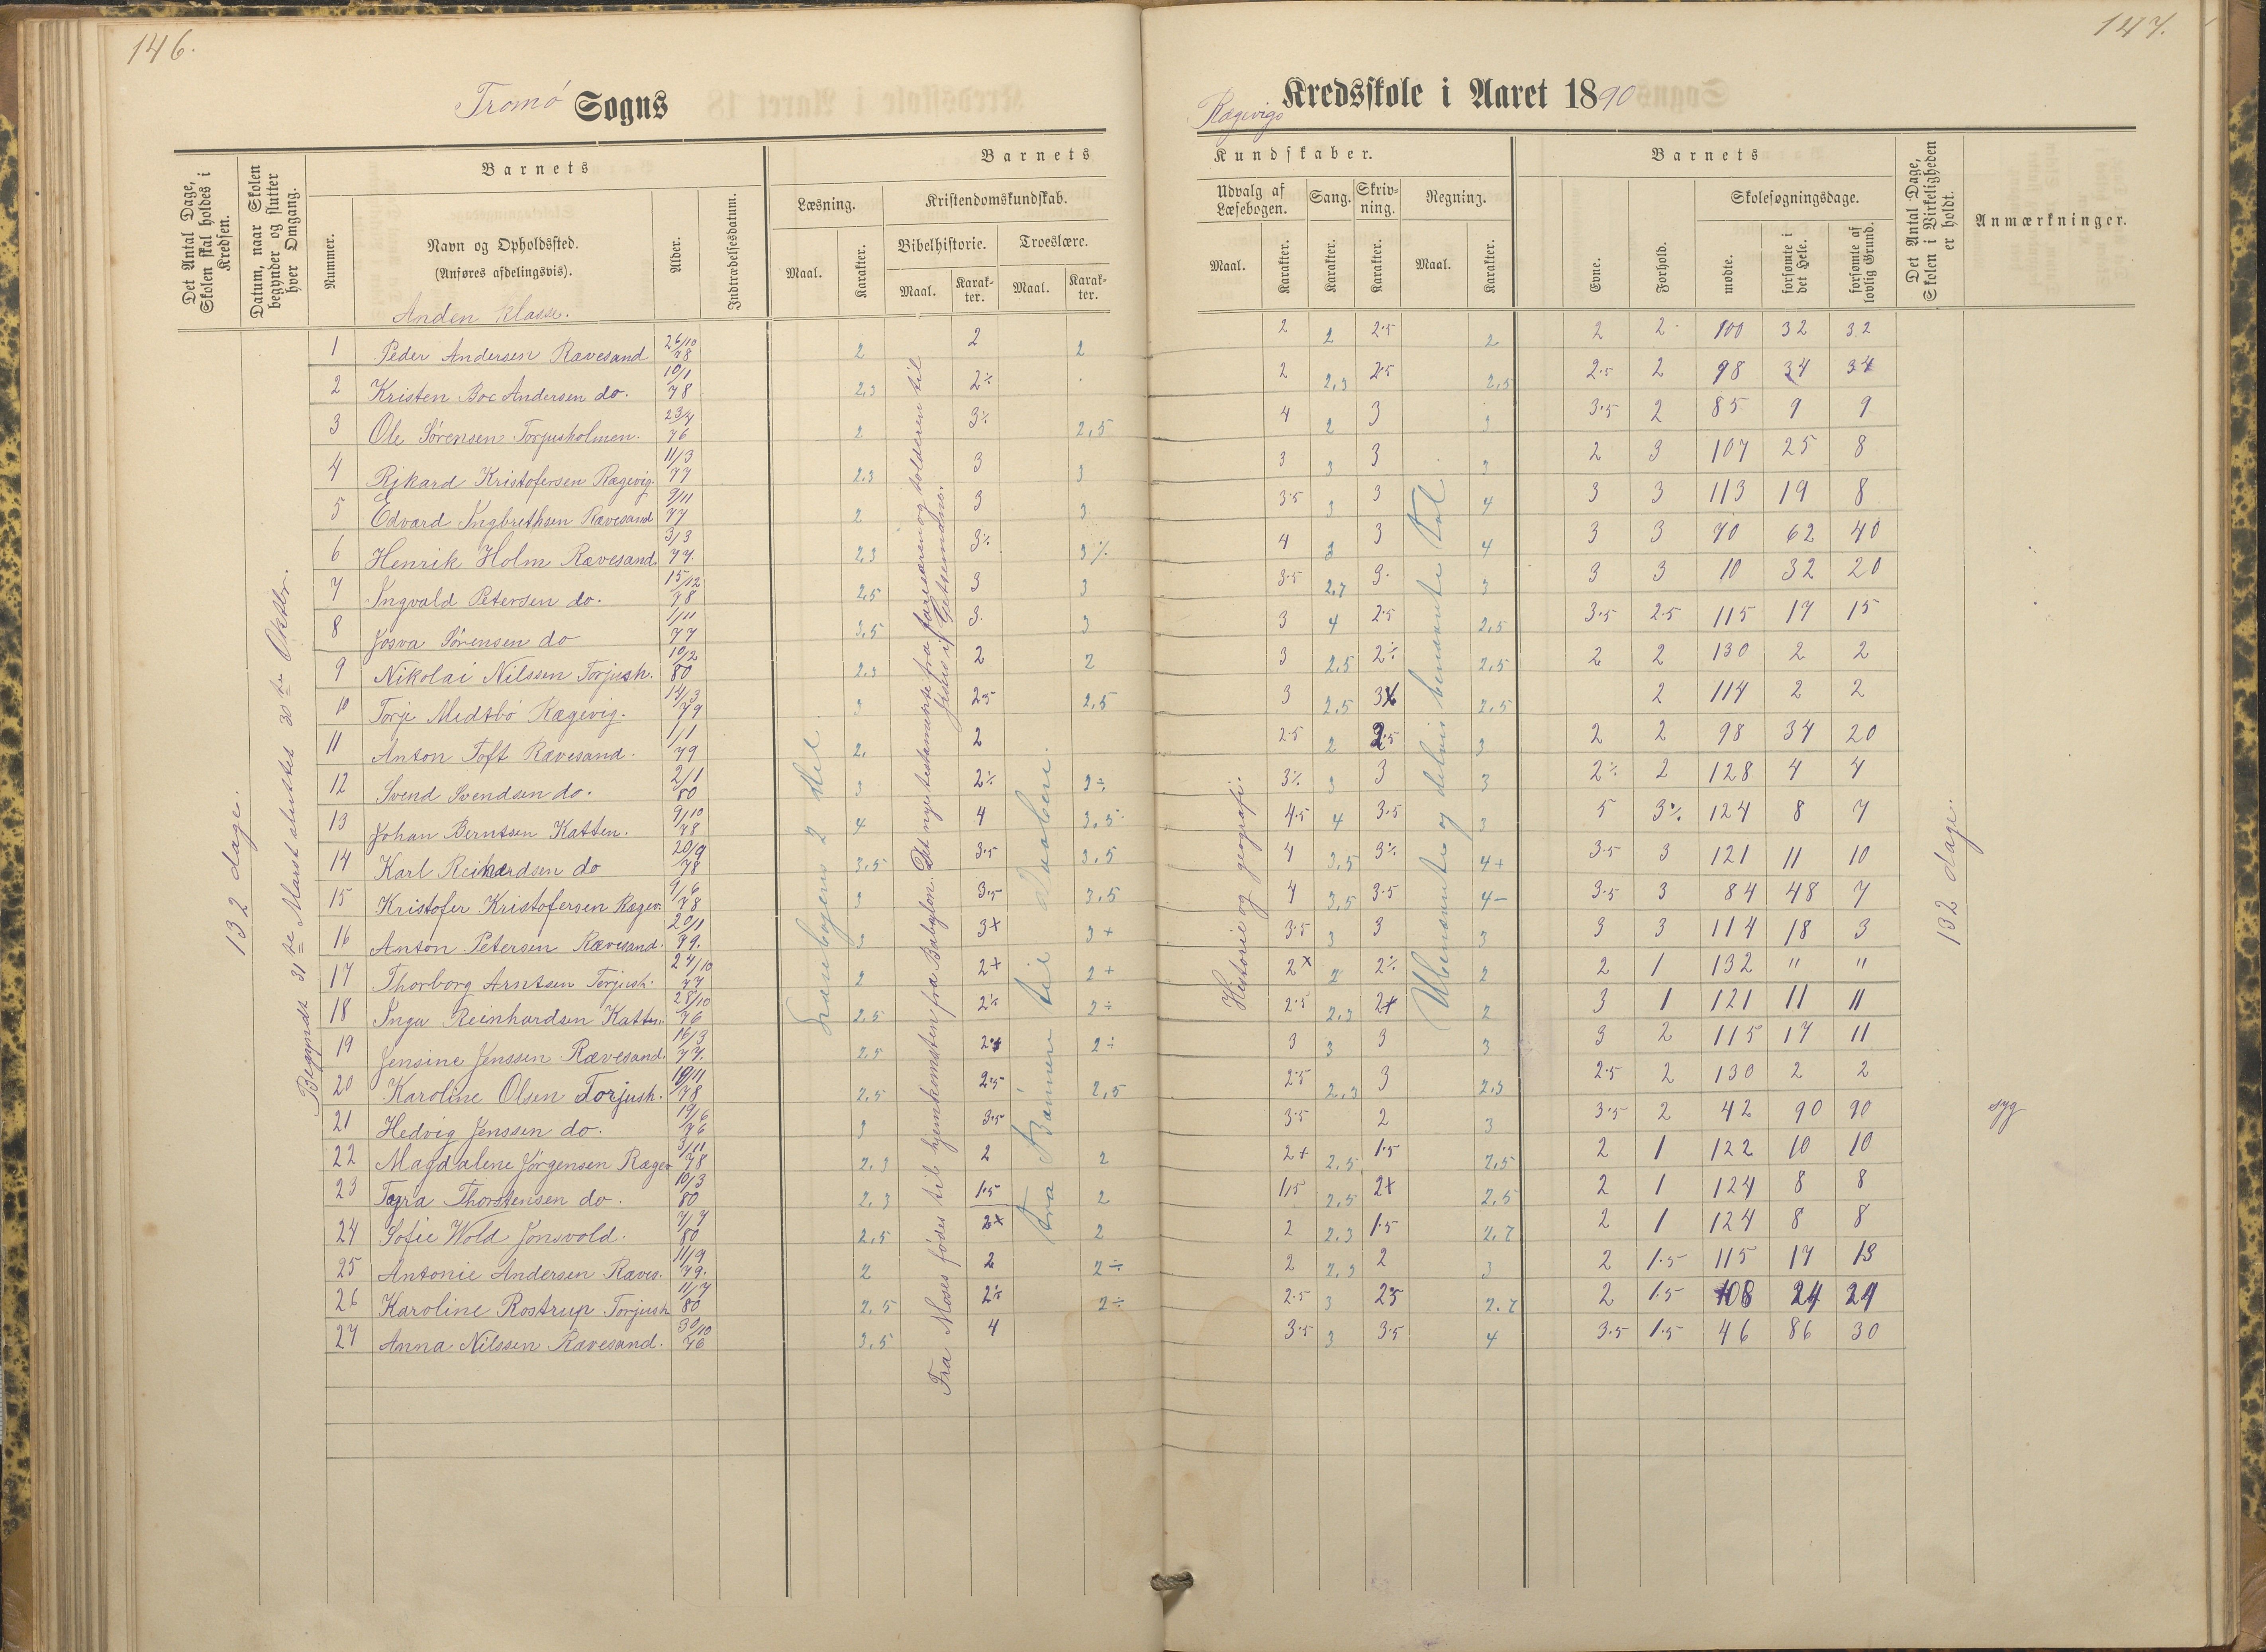 146.
Tromø Sogns
Det Antal Dage, Skolen skal holdes i Kredsen.
Datum, naar Skolen begynder og slutter hver Omgang.
Barnets
Nummer.
Navn og Opholdssted.
(Anføres afdelingsvis).
Alder.
Indtrædelsesdatum.
Barnets
Læsning.
Maal.
Karakter.
Kristendomskundskab.
Bibelhistorie.
Maal.
Karakter.
Troeslære.
Maal.
Karakter.
Anden klasse.
132 dage.
Begyndt 31te Marst sluttet 30te Oktbr.
Læsebogens 2 del
Fra Moses fødes til hjemkomsten fra Babylon. Det nye testamente fra farisæren og tolderen til
Jesus i Getsemane.
fra Bønnen til Daaben.
1 Peder Andersen Rævesand 26/10 78 2 2 2
2 Kristen Boe Andersen do. 10/1 78 2,3 2÷
3 Ole Sørensen Torjusholmen. 23/7 76 2 3÷ 2,5
4 Rikard Kristofersen Rægevig. 11/3 77 2.3 3 3
5 Edvard Ingbrethsen Rævesand 9/11 77 2 3 3
6 Henrik Holm Rævesand 3/3 77. 2,3 3÷ 3÷
7 Ingvald Petersen do. 15/12 78 2,5 3 3
8 Josva Sørensen do 1/11 77 3,5 3. 3
9 Nikolai Nilssen Torjush. 10/2 80 2.3 2 2
10 Torje Midtbø Rægevig. 14/3 79 3 2.5 2,5
11 Anton Toft Rævesand. 1/1 79 2. 2
12 Svend Svendsen do. 2/1 80 3 2÷ 2÷
13 Johan Berntsen Katten. 9/10 78 4 4 3,5
14 Karl Reihardsen do 20/9 78 3,5 3.5 3,5
15 Kristofer Kristofersen Rægev. 9/6 78 3 3.5 3,5
16 Anton Petersen Rævesand. 20/1 79. 3 3+ 3+
17 Thorborg Arntsen Torjush. 24/10 77 2 2+ 2+
18 Inga Reinhardsen Katten. 28/10 76 2,5 2÷ 2÷
19 Jensine Jenssen Rævesand. 16/3 77. 2,5 2+ 2÷
20 Karoline Olsen Torjush. 10/11 78 2,5 2.5 2,5
21 Hedvig Jenssen do. 19/6 76 3 3.5
22 Magdalene Jørgensen Rægev 3/11 78 2,3 2 2
23 Tora Thorstensen do. 10/3 80 2,3 1.5 2
24 Sofie Wold Jonsvold. 7/7 80 2,5 2+ 2
25 Antonie Andersen Ræves. 11/9 79. 2 2 2÷
26 Karoline Rostrup Torjush 11/7 80 2,5 2÷ 2÷
27 Anna Nilssen Rævesand. 30/10 76 3,5 4
147.
Rægevigs Kredsskole i Aaret 1890
Kundskaber.
Udvalg af Læsebogen.
Maal.
Karakter.
Sang.
Karakter.
Skrivning.
Karakter.
Regning.
Maal.
Karakter.
Barnets
Evne.
Forhold.
Skolesøgningsdage.
mødte.
forsømte i det Hele.
forsømte af lovlig Grund.
Det Antal Dage, Skolen i Virkeligheden er holdt.
Anmærkninger.
Historie og geografi.
Ubenævnte og delvis benævnte tal
132 dage.
2 2 2.5 2 2 2 100 32 32
2 2,3 2.5 2,5 2.5 2 98 34 34
4 2 3 3 3.5 2 85 9 9
3 3 3 3 2 3 107 25 8
3.5 3 3 4 3 3 113 19 8
4 3 3 4 3 3 70 62 40
3.5 2,7 3. 3 3 3 10 32 20
3 4 2.5 2,5 3.5 2.5 115 17 15
3 2,5 2÷ 2,5 2 2 130 2 2
3 2,5 3 2,5 2 114 2 2
2.5 2 2.5 3 2 2 98 34 20
3÷ 3 3 3 2÷ 2 128 4 4
4.5 4 3.5 3 5 3÷ 124 8 7
4 3,5 3÷ 4+ 3.5 3 121 11 10
4 3,5 3.5 4- 3.5 3 84 48 7
3.5 3 3 3 3 3 114 18 3
2+ 2 2÷ 2 2 1 132 " "
2.5 2,3 2+ 2 3 1 121 11 11
3 3 3 3 3 2 115 17 11
2.5 2,3 3 2,3 2.5 2 130 2 2
3.5 2 3 3.5 2 42 90 90 syg
2+ 2,5 1.5 2,5 2 1 122 10 10
1,5 2,5 2+ 2,5 2 1 124 8 8
2 2,3 1.5 2,7 2 1 124 8 8
2 2,3 2 3 2 1.5 115 17 13
2.5 3 25 2,7 2 1.5 108 24 24
3.5 3 3.5 4 3.5 1.5 46 86 30